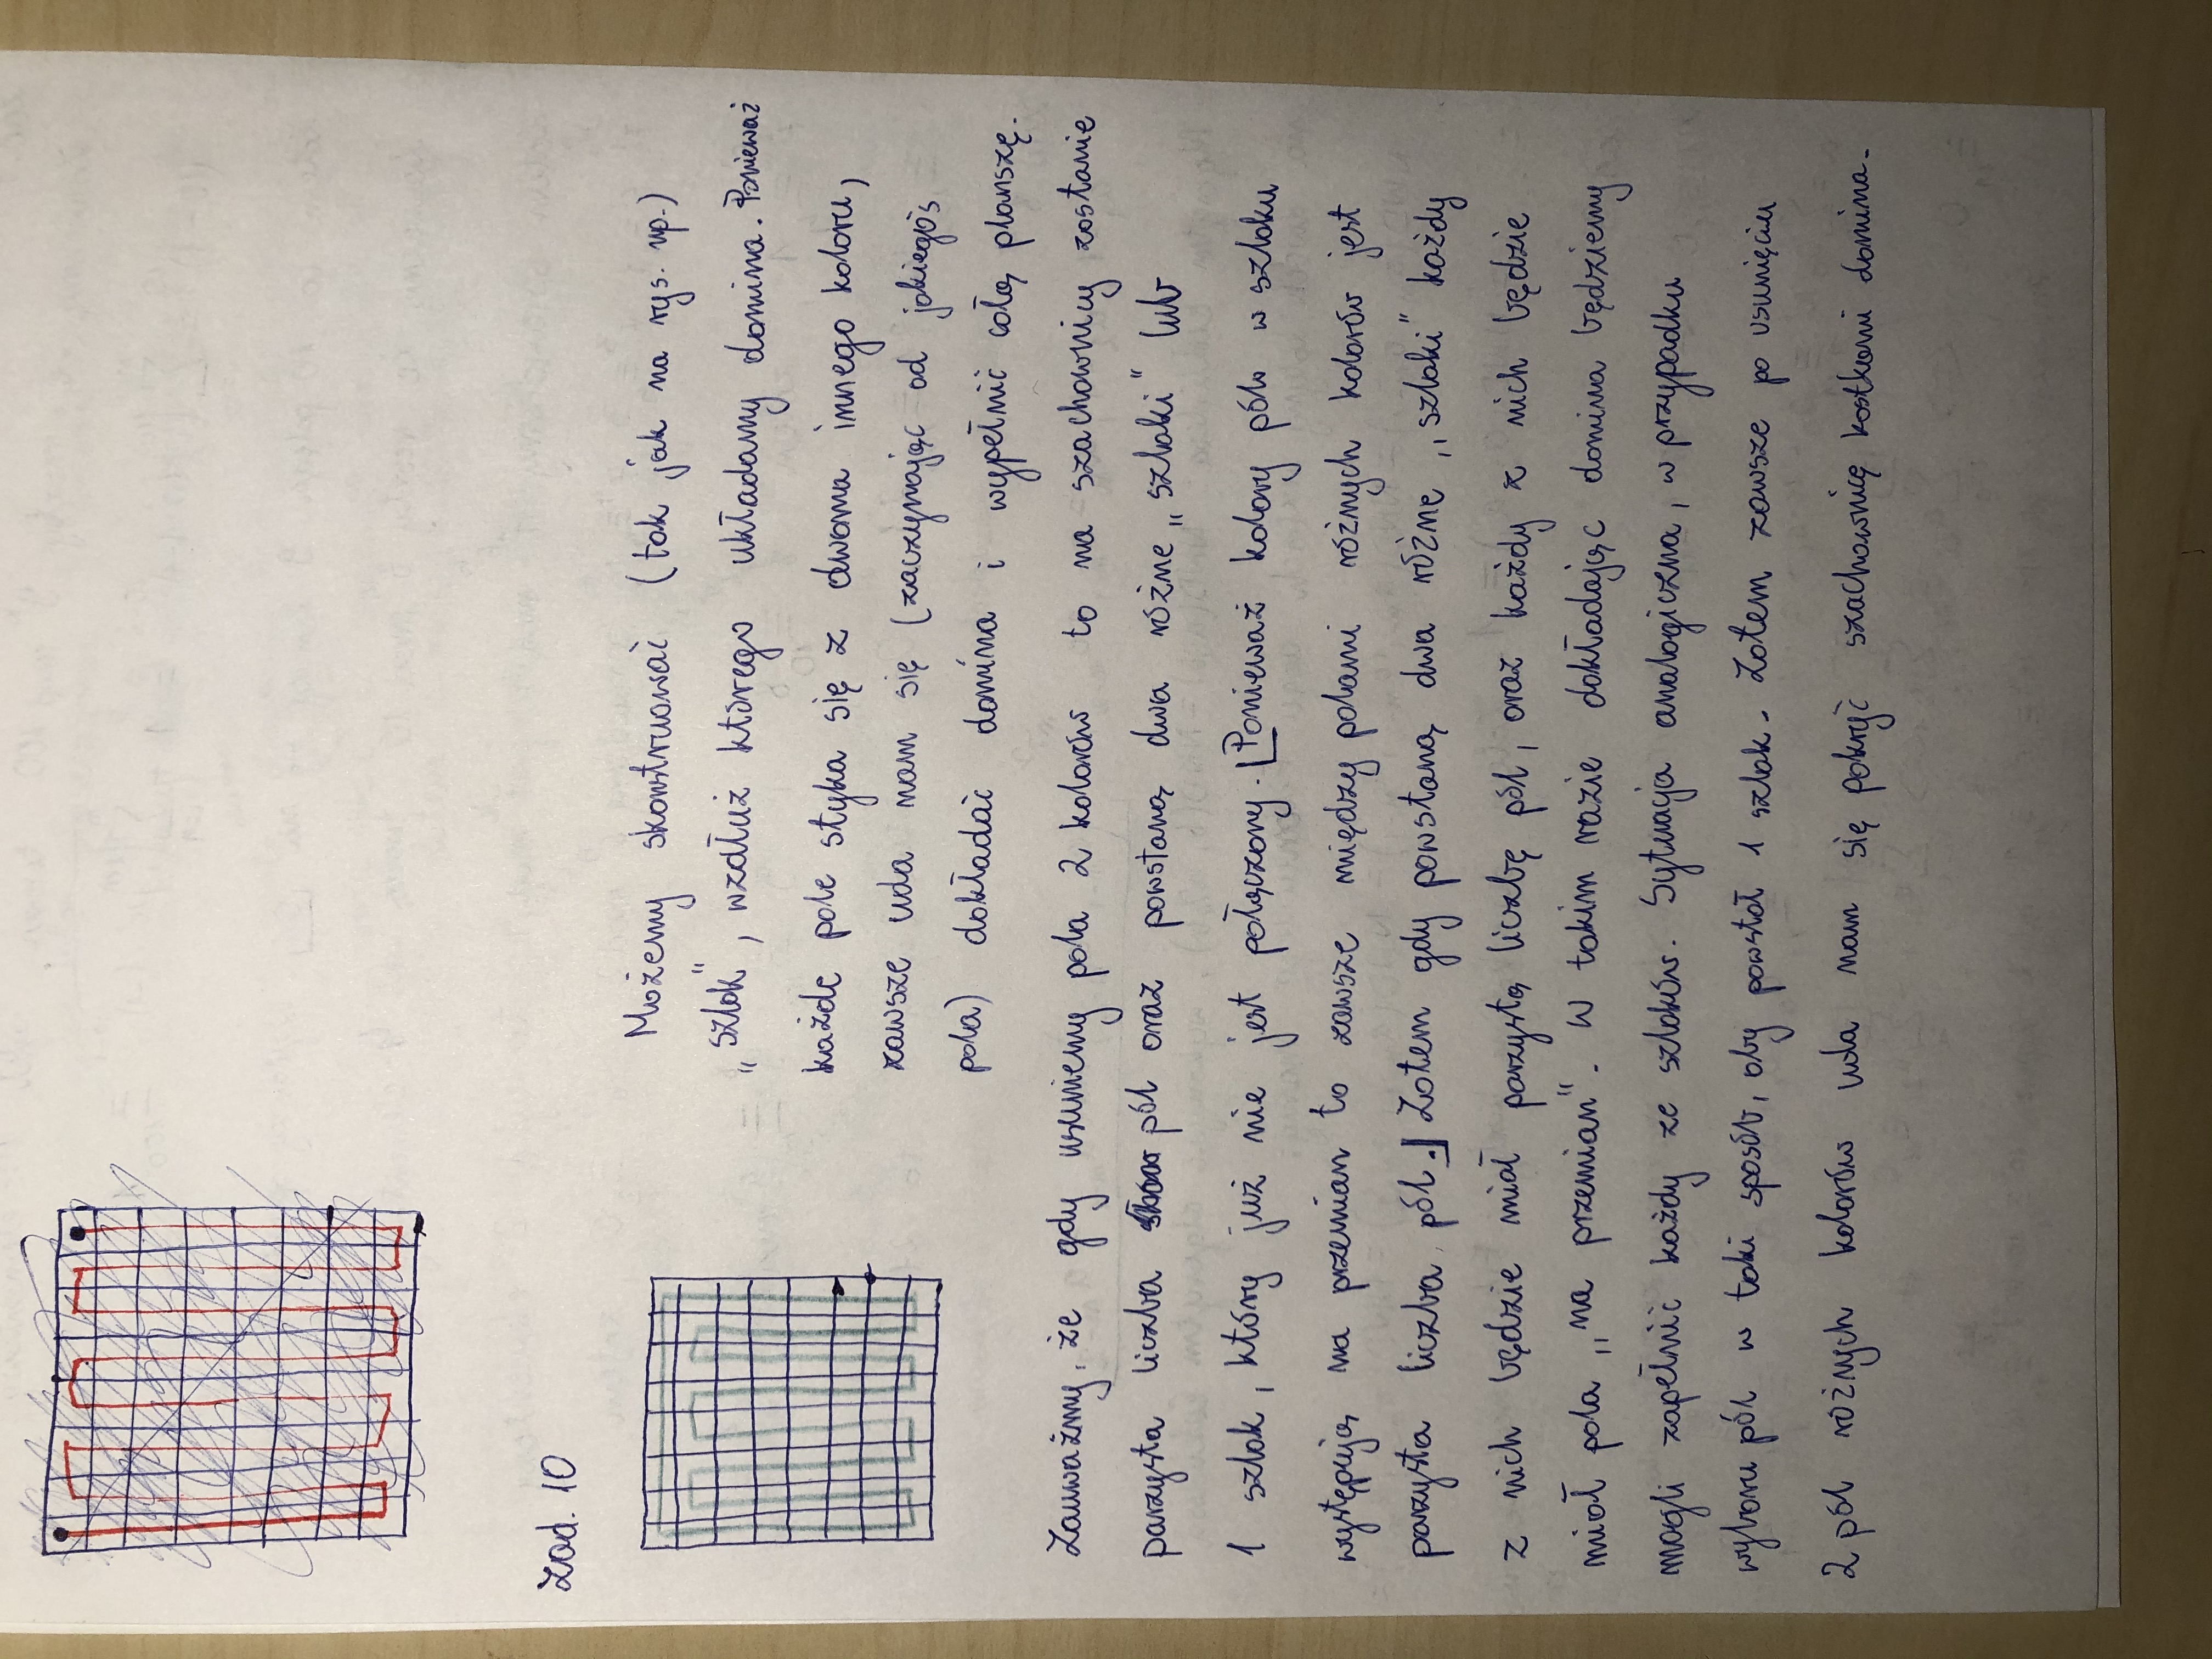 Zad. 10
Możemy skonstruować (tak jak na rys. np.)
„szlak”, wzdłuż którego układamy domina. Ponieważ
każde pole styka się z dwoma innego koloru,
zawsze uda nam się (zaczynając od jakiegoś
pola) dokładać domina i wypełnić całą planszę.
Zauważmy, że gdy usuniemy pola 2 kolorów to na szachownicy zostanie
parzysta liczba pól oraz powstaną dwa różne „szlaki” lub
1 szlak, który już nie jest połączony. [Ponieważ kolory pól w szlaku
występują na przemian to zawsze między polami różnych kolorów jest
parzysta liczba pól.] Zatem gdy powstaną dwa różne „szlaki” każdy
z nich będzie miał parzystą liczbę pól, oraz każdy z nich będzie
miał pola „na przemian”. W takim razie dokładając domina będziemy
mogli zapełnić każdy ze szlaków. Sytuacja analogiczna, w przypadku
wyboru pól w taki sposób, aby powstał 1 szlak. Zatem zawsze po usunięciu
2 pól różnych kolorów uda nam się pokryć szachownicę kostkami domina.